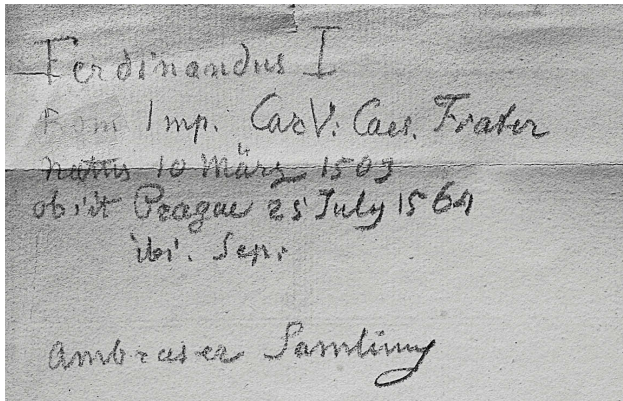 Ferdinandus I
Rom Imp. Car V. Caes. Frater
natus 10 März 1503
obiit Pragae 25 July 1564
ibi. Sep.
Ambraser Samlung